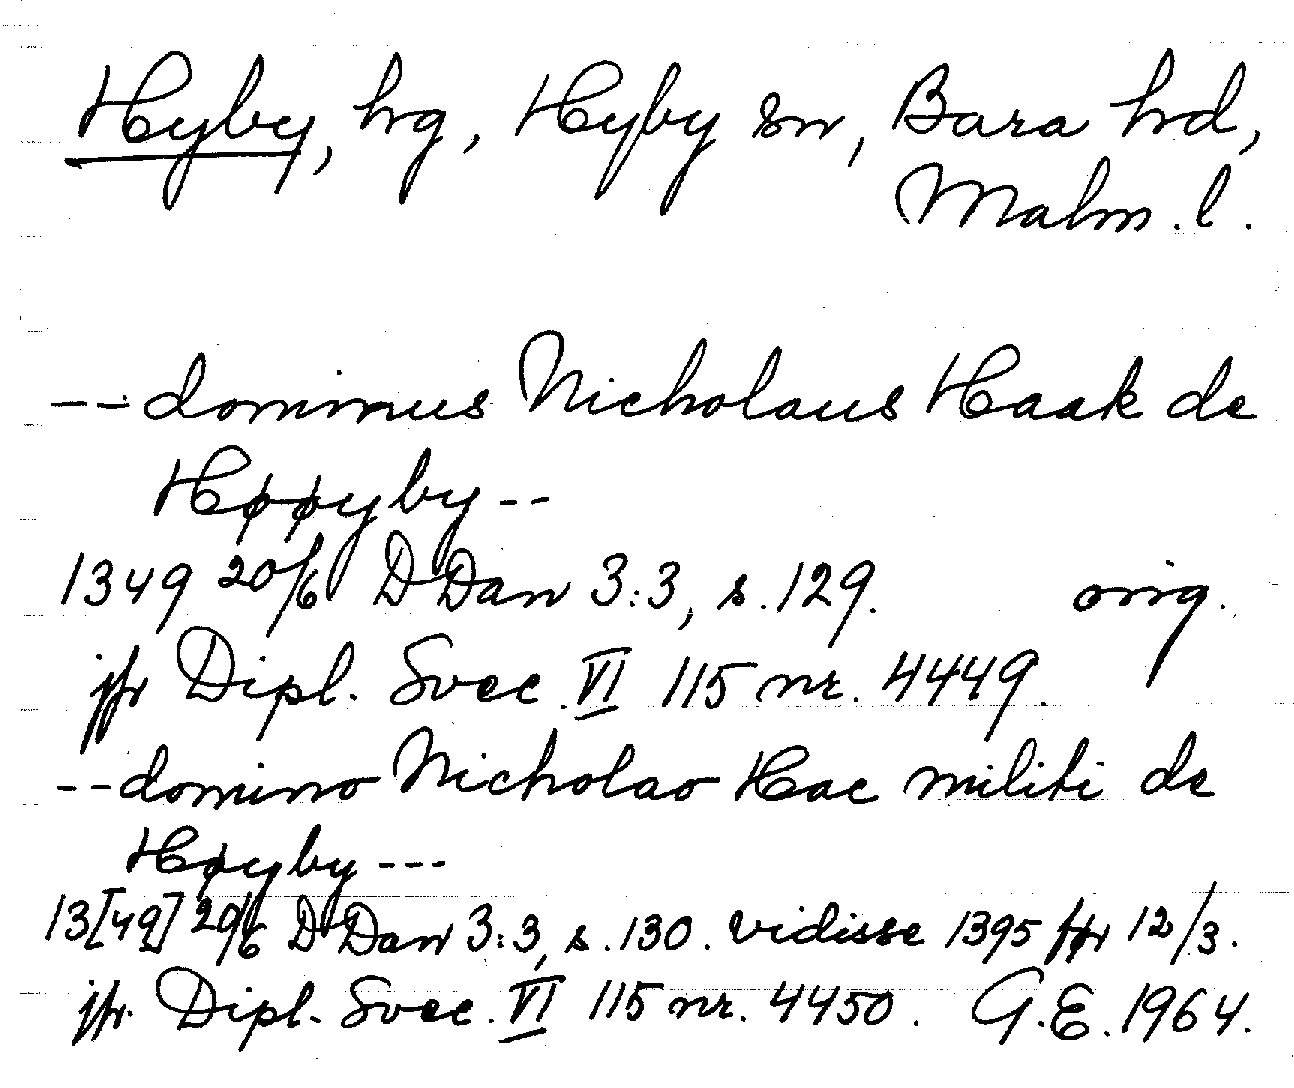 Hyby, hg, Hyby sn, Bara hd,
Malm. l.
-- dominus Nicholaus Haak de
Høøyby --
1349 20/6 D Dan 3:3, s. 129. orig.
jfr Dipl. Svec. VI 115 nr. 4449.
-- domino Nicholao Hac militi de
Høyby ---
13[49] 20/6 D Dan 3:3, s. 130. vidisse 1395 12/3.
jfr. Dipl. Svec. VI 115 nr. 4450. G.E. 1964.